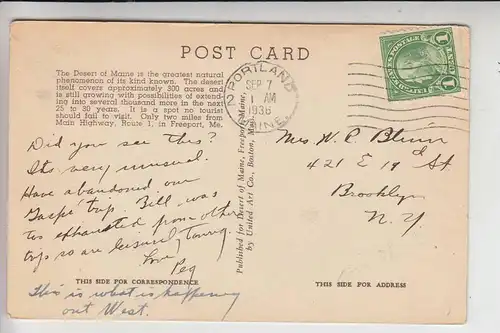 POST CARD
The Desert of Maine is the greatest natural
phenomenon of its kind known. The desert
itself covers approximately 300 acres and
is still growing with possibilities of extend-
ing into several thousand more in the next
25 to 30 years. It is a spot no tourist
should fail to visit. Only two miles from
Main Highway, Route 1, in Freeport, Me.
Did you see this?
It's very unusual.
Have abandoned our
Gaspé trip. Bill was
too exhausted from other
trip so are leisurely touring.
Love,
Peg
THIS SIDE FOR CORRESPONDENCE
This is what is happening
out West.
Published for Desert of Maine, Freeport, Maine,
by United Art Co., Boston, Mass.
PORTLAND
SEP 7
1 AM
1938
MAINE
UNITED STATES POSTAGE
1 1
Mrs W. P. Blunn
421 E 19th St.
Brooklyn
N. Y.
THIS SIDE FOR ADDRESS